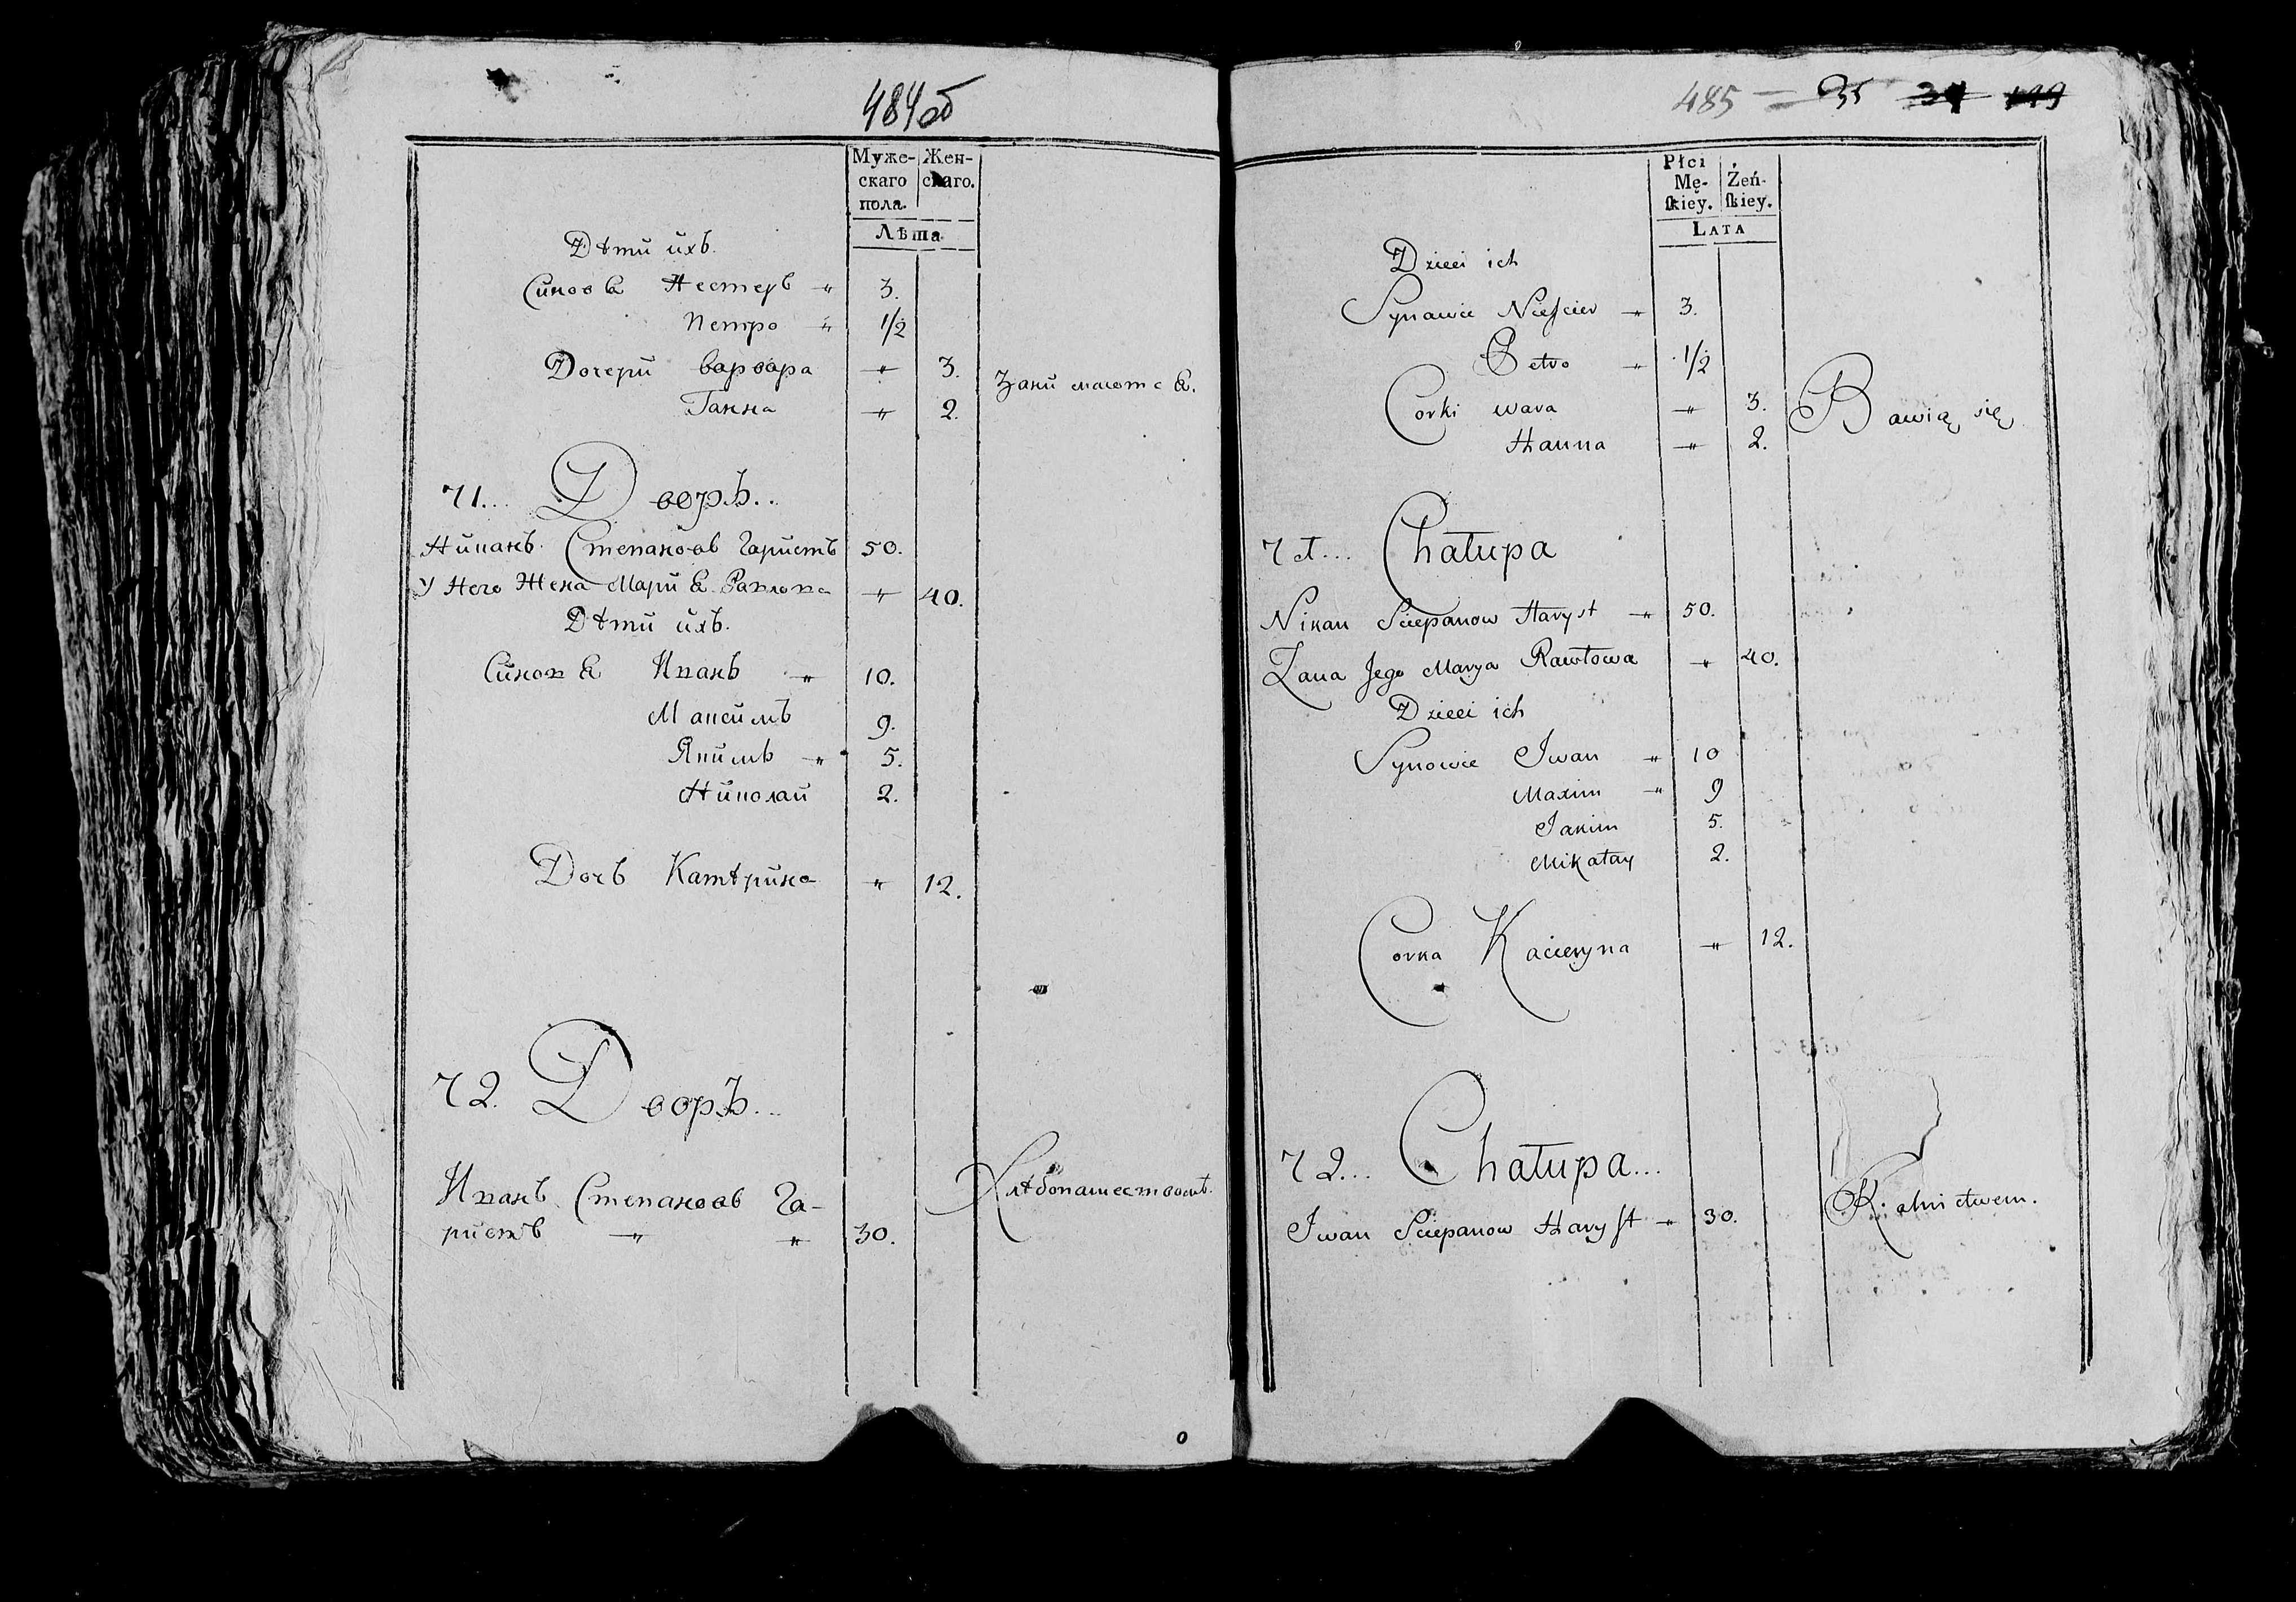 484об
Муже-
скаго
пола.
Жен-
скаго.
Лѣта
Дѣти ихъ.
Синовя Нестеръ " 3.
Петро " 1/2
Дочери Варвара " 3.
Занимаются.
Ганна " 2.
71... Дворъ..
Никанъ Степановъ Гаристъ 50.
У Него Жена Мария Павлова " 40.
Дѣти ихъ.
Синовя Иванъ " 10.
Максимъ 9.
Якимъ " 5.
Николай 2.
Дочь Катѣрина " 12.
72. Дворъ...
Иванъ Степановъ Га-
ристъ " " 30.
Хлѣбопашествомъ.
485 = 35
Płci
Mę-
ſkiey.
Żeń-
ſkiey.
LATA
Dzieci ich
Synawie Nieſcier " 3.
Petro " 1/2
Corki Wara " 3.
Bawią się
Hanna " 2.
71... Chałupa
Nikan Sciepanow Haryst " 50.
Żana Jego Marya Pawłowa " 40.
Dzieci ich
Synowie Iwan " 10
Maxim " 9
Jakim 5.
Mikałay 2.
Corka Kacieryna " 12.
72... Chałupa...
Iwan Sciepanow Haryſt " 30.